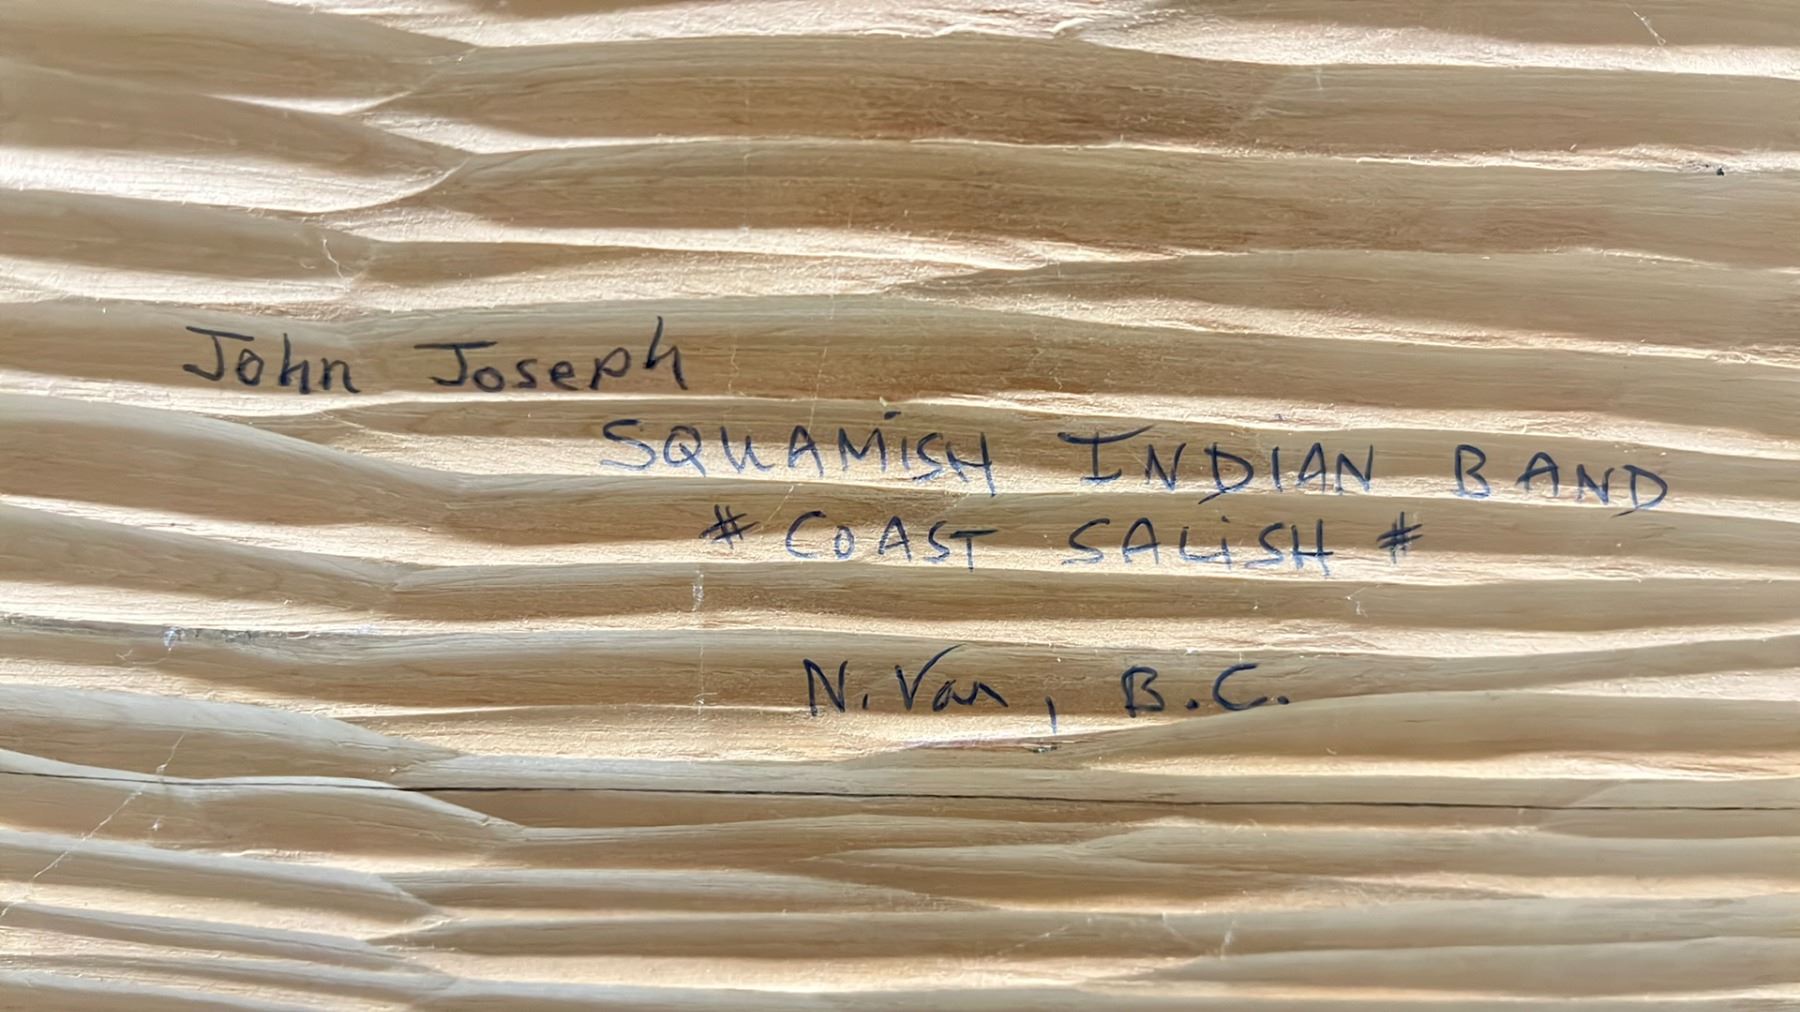 John Joseph
SQUAMiSH INDIAN BAND
# COAST SALiSH #
N. Van, B.C.